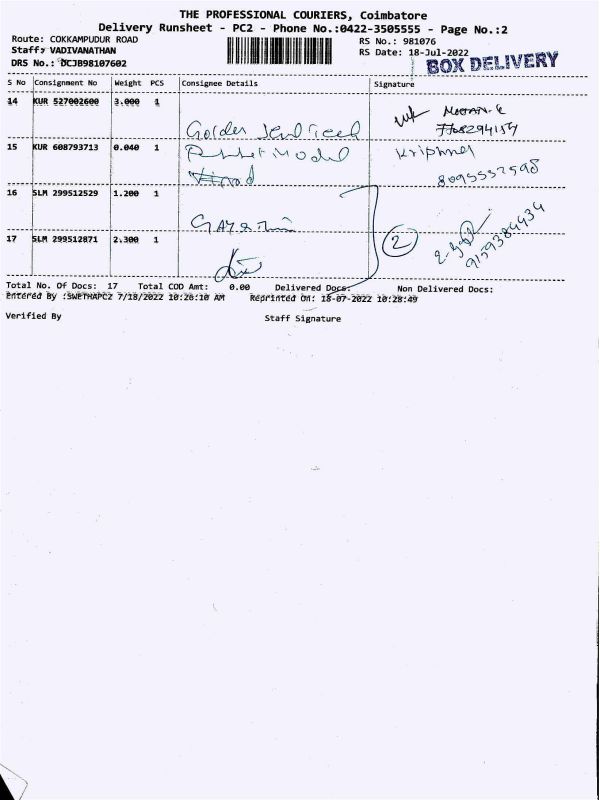 THE PROFESSIONAL COURIERS, Coimbatore
Delivery Runsheet - PC2 - Phone No.:0422-3505555 - Page No.:2
Route: COKKAMPUDUR ROAD RS No.: 981076
Staff: VADIVANATHAN RS Date: 18-Jul-2022
DRS No.: DCJB98107602 BOX DELIVERY
S No Consignment No Weight PCS Consignee Details Signature
14 KUR 527002600 3.000 1
15 KUR 608793713 0.040 1
16 SLM 299512529 1.200 1
17 SLM 299512871 2.300 1 2
9159384934
Total No. Of Docs: 17 Total COD Amt: 0.00 Delivered Docs: Non Delivered Docs:
Entered By :SWETHAPC2 7/18/2022 10:26:10 AM Reprinted On: 18-07-2022 10:28:49
Verified By Staff Signature